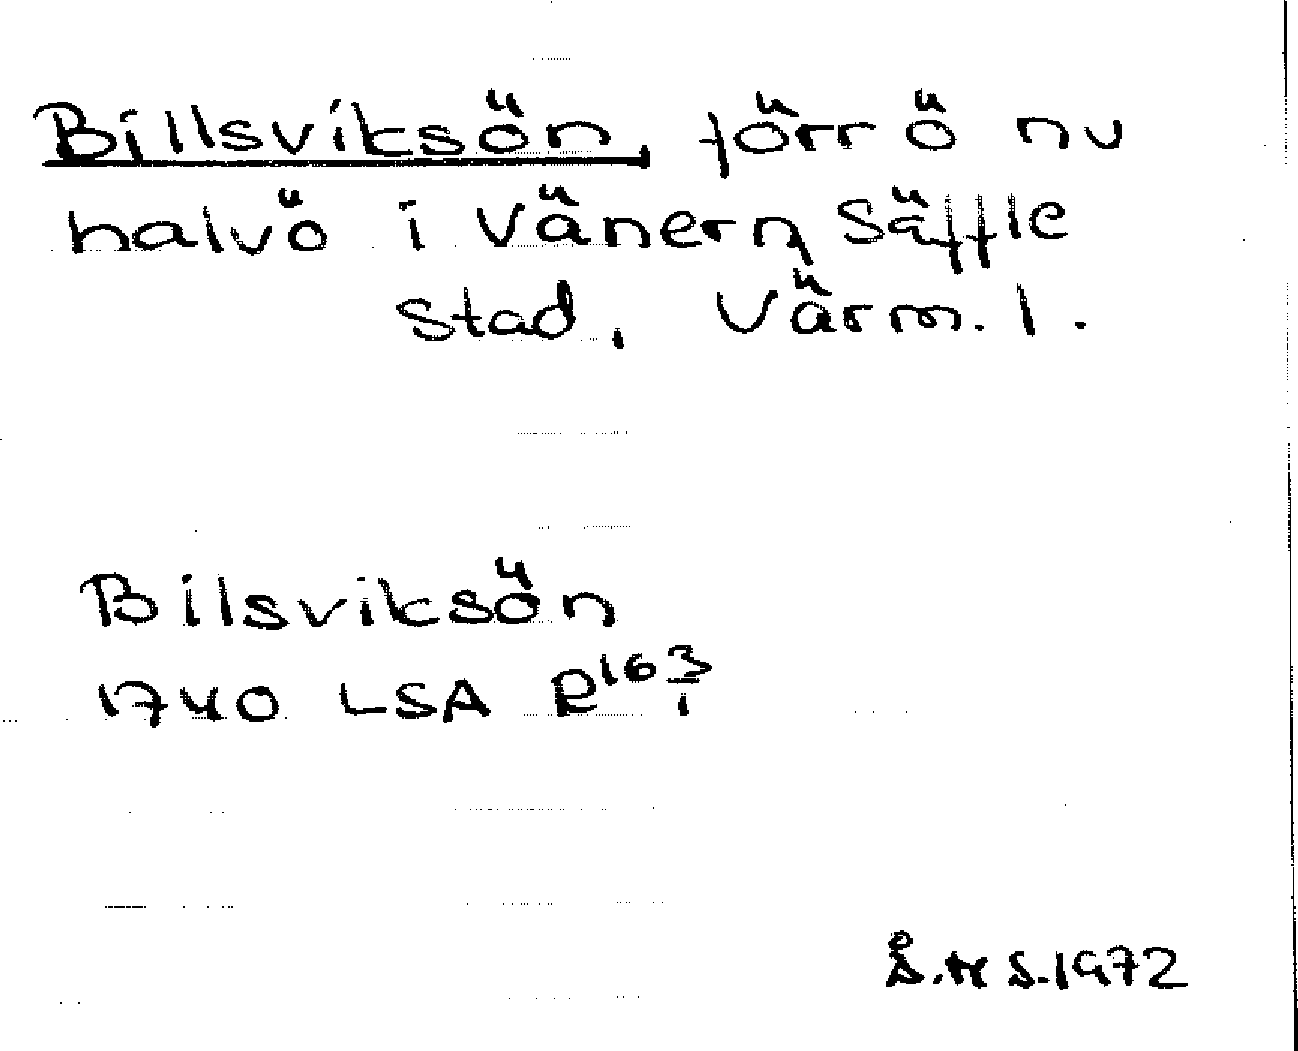 Billsviksön, förr ö nu
halvö i Vänern, Säffle
stad, Värm. l.
Bilsviksön
1740 LSA R 163/1
S.H S. 1972